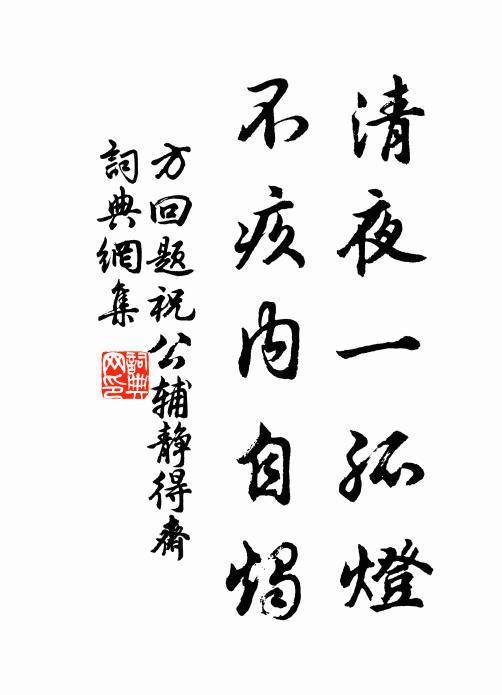 清夜一孤燈
不疚内自燭
方回题祝公辅靜得齋
詞典網集
詞典网印